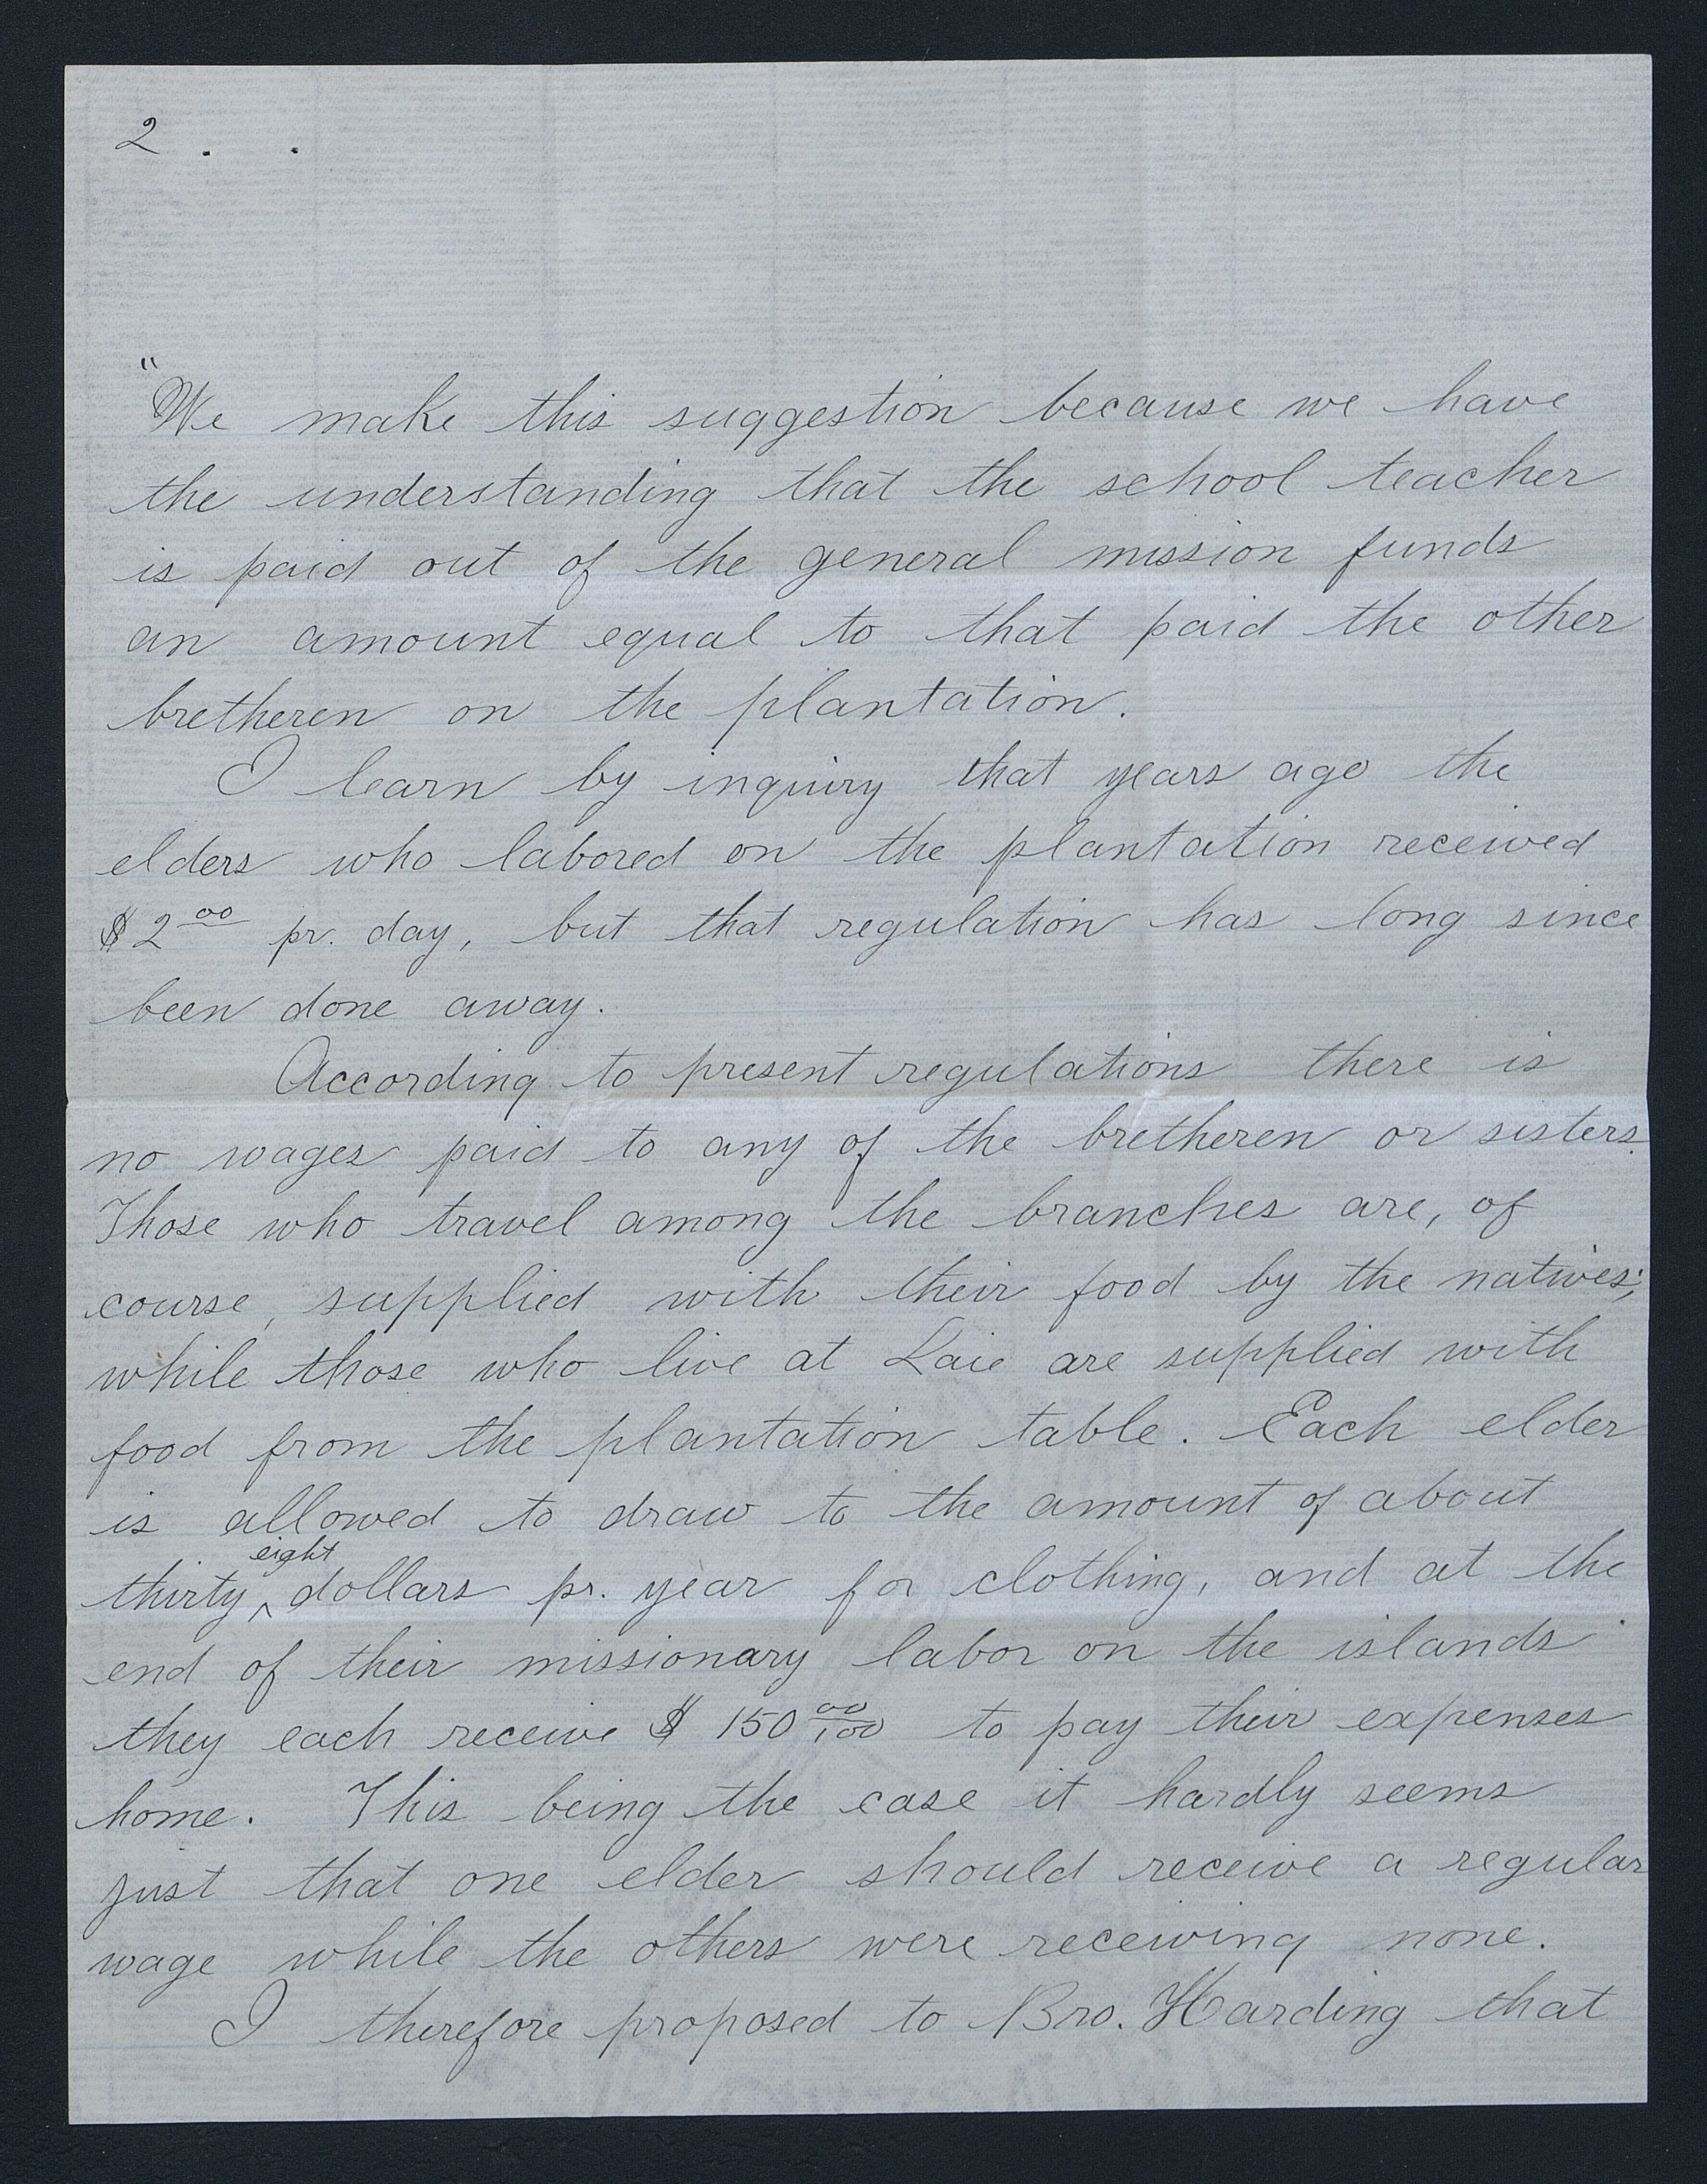 2 . .
"We make this suggestion because we have
the understanding that the school teacher
is paid out of the general mission funds
an amount equal to that paid the other
bretheren on the plantation.
I learn by inquiry that years ago the
elders who labored on the plantation received
$2 00 pr. day, but that regulation has long since
been done away.
According to present regulations there is
no wages paid to any of the bretheren or sisters.
Those who travel among the branches are, of
course, supplied with their food by the natives;
while those who live at Laie are supplied with
food from the plantation table. Each elder
is allowed to draw to the amount of about
thirty ^eight dollars pr. year for clothing, and at the
end of their missionary labor on the islands
they each receive $ 150 00/100 to pay their expenses
home. This being the case it hardly seems
just that one elder should receive a regular
wage while the others were receiving none.
I therefore proposed to Bro. Harding that